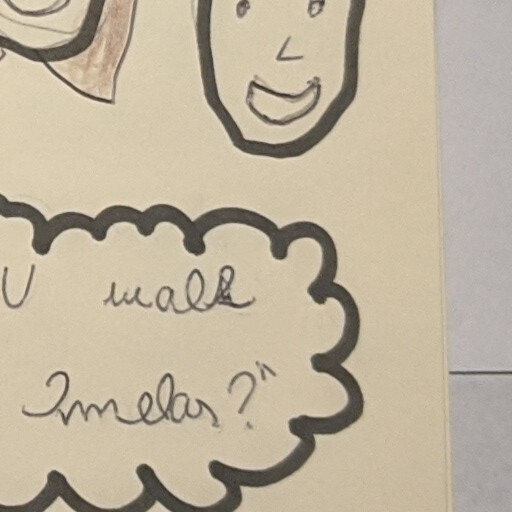 U walk
Omelas?"